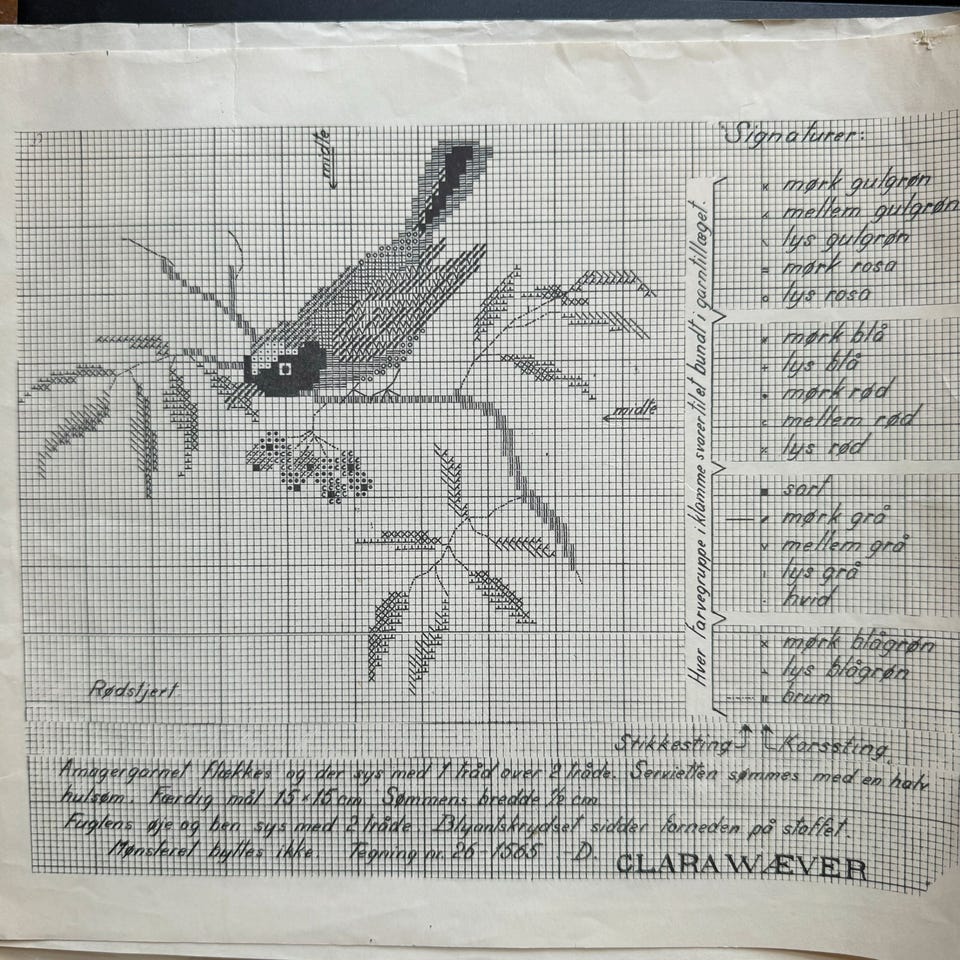 midte
Signaturer:
mørk gulgrøn
mellem gulgrøn
lys gulgrøn
mørk rosa
lys rosa
mørk blå
lys blå
mørk rød
mellem rød
lys rød
sort
mørk grå
mellem grå
lys grå
hvid
mørk blågrøn
lys blågrøn
brun
Hver farvegruppe i klamme svarer til et bundt i garntillæget.
midte
Rødstjert
Stikkesting
Korssting
Amagergarnet flækkes og der sys med 1 tråd over 2 tråde. Servietten sømmes med en halv
hulsøm. Færdig mål 15×15 cm Sømmens bredde ½ cm
Fuglens øje og ben sys med 2 tråde. Blyantskrydset sidder forneden på stoffet.
Mønsteret byttes ikke. Tegning nr. 26-1565 D. CLARA WÆVER